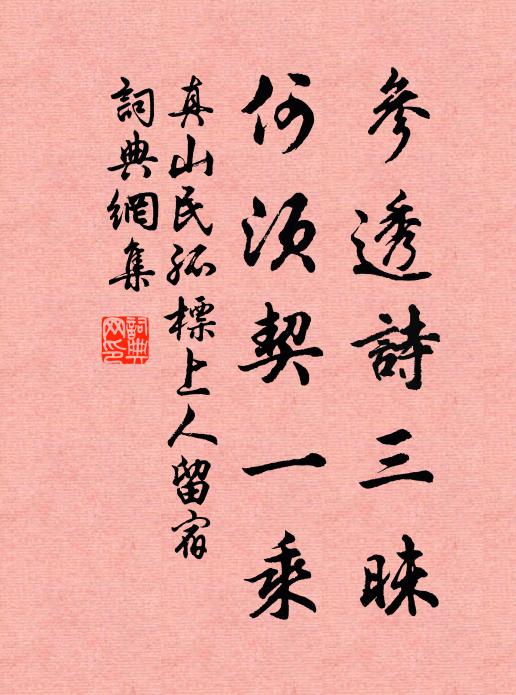 參透詩三昧
何須契一乘
真山民孤標上人留宿
詞典網集
詞典網印